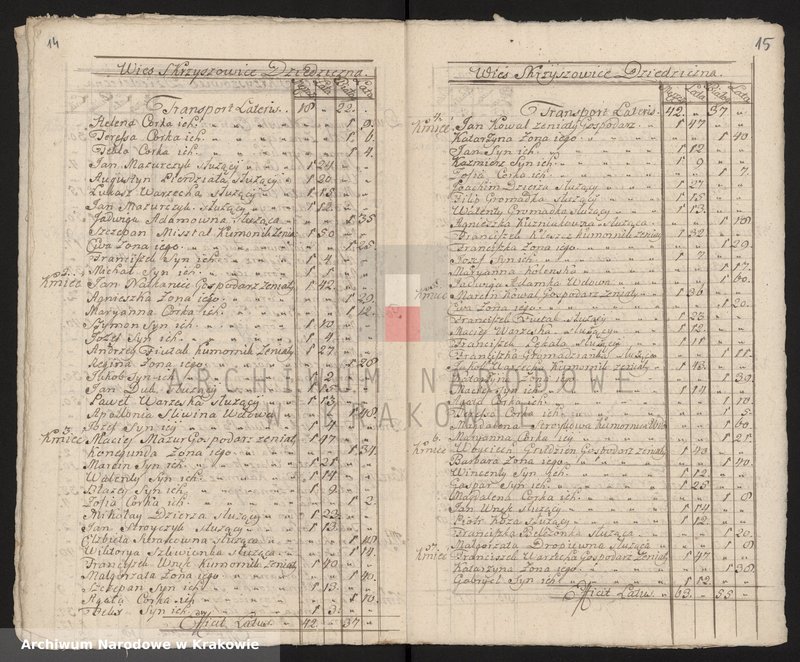 14
Wies Skrzyszowice Dziedziczna.
Transport Lateris. 18 - 22.
Helena Corka ich 1 9.
Teresa Corka ich 1 6.
Tekla Corka ich 1 4.
Jan Mazurczyk służący 1 24
Augustyn Pierdziała Służący 1 20
Łukasz Warzecha Służący 1 15
Jan Mazurczyk służący 1 12
Jadwiga Adamowna Służąca 1 35
Szczepan Misstal Kumornik Żeniaty 1 50
Ewa Żona iego 1 25
Franciszek Syn ich 1 4
Michał Syn ich 1 1
Kmiec Jan Nalkaniec Gospodarz żeniaty 1 42
Agnieszka Żona iego 1 29
Maryanna Corka ich 1 12
Szymon Syn ich 1 10
Jozef Syn ich 1 4
Andrzey Fiutak Kumornik Żeniaty 1 27
Regina Żona iego 1 28
Jakob Syn ich 1 2
Jan Duda służący 1 15
Paweł Warzecha Służący 1 13
Apallonia Sliwina Wdowa 1 48
Jozef Syn iey 1 4
3. Kmiec Maciey Mazur Gospodarz żeniat. 1 47
Konegunda Żona iego 1 34
Marcin Syn ich 1 21
Walenty Syn ich 1 14
Błazey Syn ich 1 9
Zofia Corka ich 1 2
Mikołay Dzierza służący 1 23
Jan Stroyczyk służący 1 13
Elzbieta Skrakowna służąca 1 40
Wiktorya Szlewianka służąca 1 14
Franciszek Wnuk Kumornik żeniat 1 40
Małgorzata Żona iego 1 40
Szczepan Syn ich 1 13
Agata Corka ich 1 10
Felix Syn ich 1 3
Efficit Latus 42 37
15
Wieś Skrzyszowice Dziedziczna.
Transport Lateris 42 37
4. Kmiec Jan Kowal żeniaty Gospodarz 1 47
Katarzyna Żona iego 1 40
Jan Syn ich 1 12
Kazimierz Syn ich 1 9
Zofia Corka ich 1 7
Joachim Dzierza Służący 1 27
Filip Gromadka służący 1 15
Walenty Gromadka Służący 1 13
Agnieszka Kuzniakowna służąca 1 18
Franciszek Klesze Kumornik żeniat. 1 32
Franciszka Żona iego 1 29
Jozef Syn ich 1 7
Maryanna 1 17
Jadwiga Adamka Wdowa 1 60
5. Kmiec Marcin Kowal Gospodarz żeniaty 1 36
Ewa Żona iego 1 20
Franciszek Fiutak Służący 1 23
Maciey Warzecha służący 1 12
Franciszek Pękala służący 1 11
Franciszka Gromadzianka służąca 1 11
Jakob Warzecha Kumornik żeniat. 1 43
Katarzyna Żona iego 1 39
Maciey Syn ich 1 14
Agata Corka ich 1 10
Teresa Corka ich 1 5
Magdalena Stroykowa Kumornica Wdo 1 60
Maryanna Corka iey 1 21
6. Kmiec Woyciech Grudzien Gospodarz żeniaty 1 40
Barbara Żona iego 1 40
Wincenty Syn ich 1 12
Gaspar Syn ich 1 25
Magdalena Corka ich 1 8
Jan Wnuk Służący 1 14
Piotr Koza Służący 1 12
Franciszka Bieleżonka Służąca 1 20
Małgorzata Drodziowna Służąca 1 8
7. Kmiec Franciszek Warzecha Gospodarz Żeniat. 1 47
Katarzyna Żona iego 1 38
Gabryel Syn ich 1 12
Efficit Latus 63 55
ARCHIWUM NARODOWE
W KRAKOWIE
Archiwum Narodowe w Krakowie